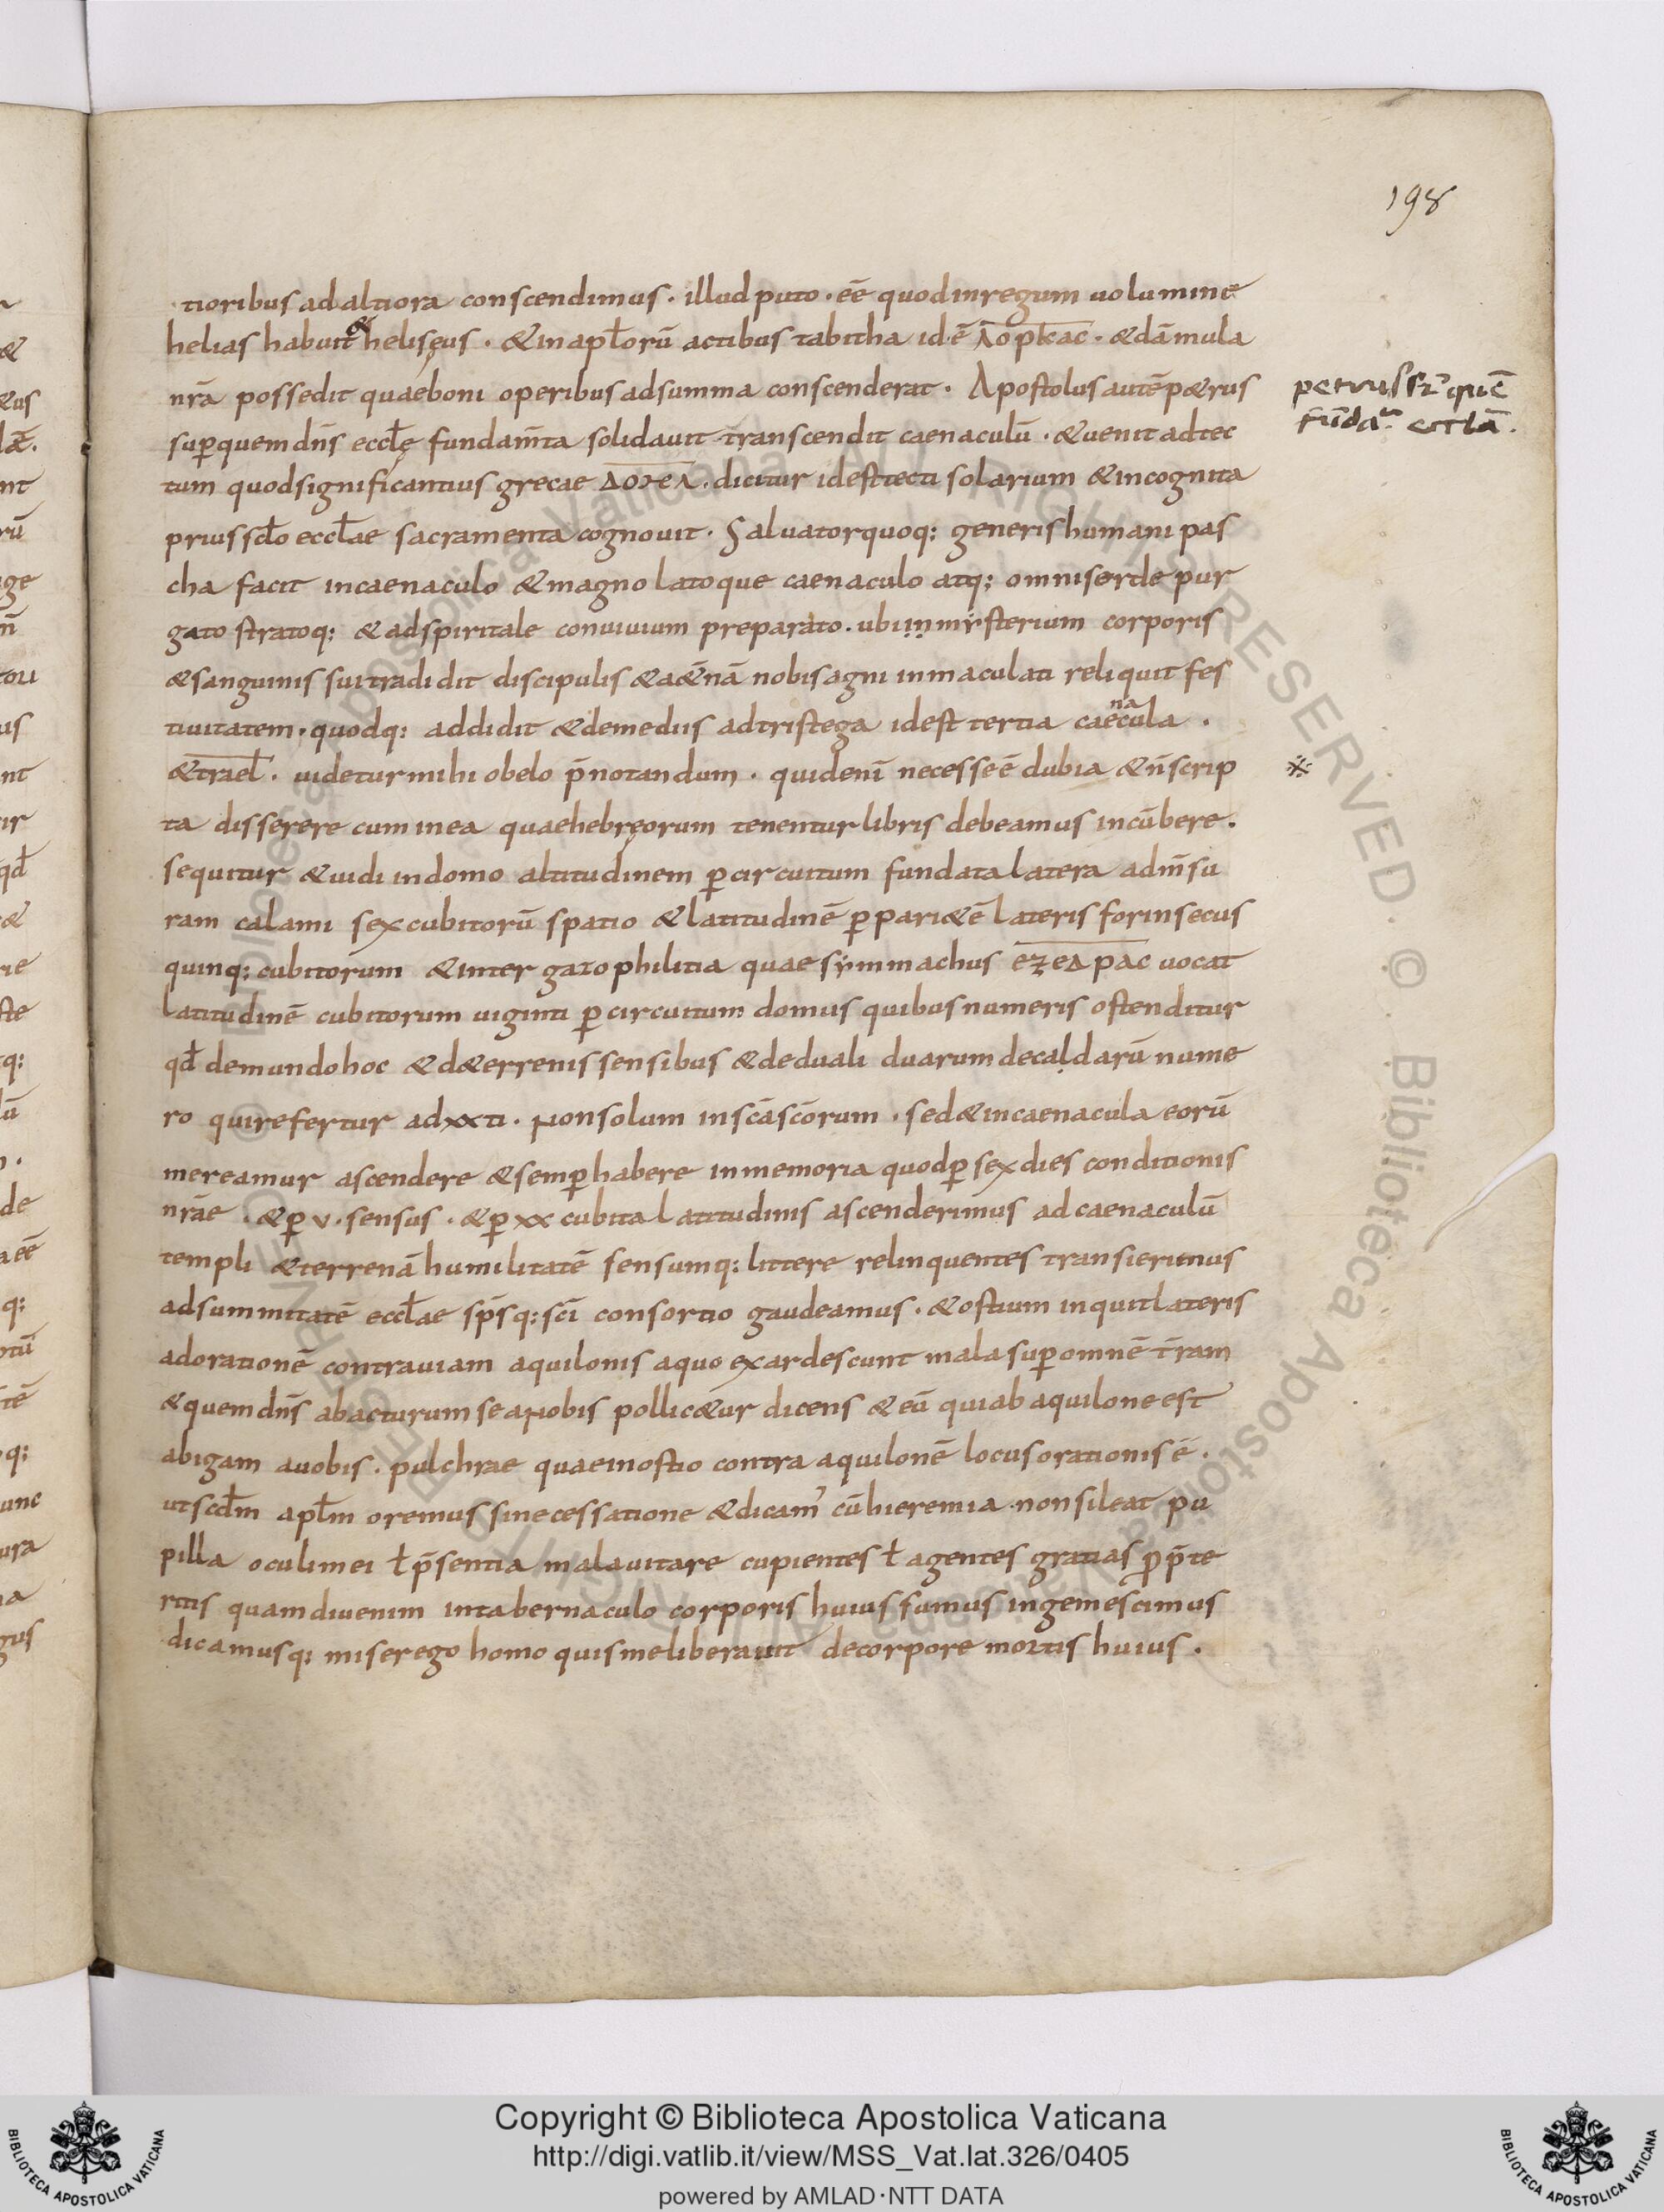 198
tioribus ad altiora conscendimus · illud puto · eē quod in regum uolumine
helias habuit & heliseus · & in apł̄orū actibus tabitha id·ē ΔορΚac · & dā mula
nr̄a possedit quae boni operibus ad summa conscenderat · Apostolus autē p&rus
petrus sr̄ quē
sup̱ quem dn̄s eccł̄ę fundam̄ta solidauit transcendit caenaculū · & uenit ad tec
fūdaᵗ eccłā.
tum quod significantius grecae ΔΟϨΕΛ · dicitur id est tecti solarium & incognita
prius scł̄o eccł̄ae sacramenta cognouit · Saluator quoq; generis humani pas
cha facit in caenaculo & magno latoque caenaculo atq; omni sorde pur
gato stratoq; & ad spiritale conuiuium preparato · ubi in mysterium corporis
& sanguinis sui tradidit discipulis & a&nā nobis agni inmaculati reliquit fes
tiuitatem · quodq; addidit & de mediis ad tristega id est tertia caenacula ·
& trael̄ · uidetur mihi obelo p̄notandum · quid enī necesse ē dubia & n̄ scrip
ta disserere cum in ea quae hebręorum tenentur libris debeamus incūbere ·
sequitur & uidi in domo altitudinem p̱ circuitum fundata latera ad m̄su
ram calami sex cubitorū spatio & latitudinē p̱ pari&ē lateris forinsecus
quinq; cubitorum & inter gatophilitia quae symmachus eȥeΔpac uocat
latitudinē cubitorum uiginti p̱ circuitum domus quibus numeris ostenditur
qđ de mundo hoc & d& errenis sensibus & de duali duarum decaldarū nume
ro qui refertur ad xxti · Non solum in sc̄a sc̄orum · sed & in caenacula eorū
mereamur ascendere & semp̱ habere in memoria quod p̱ sex dies conditionis
nr̄ae · & p̱ v · sensus · & p̱ xx cubita latitudinis ascenderimus ad caenaculū
templi & terrenā humilitatē sensumq; littere relinquentes transierimus
ad summitatē eccł̄ae sp̄sq; sc̄i consortio gaudeamus · & ostium inquit lateris
ad orationē contra uiam aquilonis a quo exardescunt mala sup̱ omnē t̄ram
& quem dn̄s abacturum se a nobis pollic&ur dicens & eū qui ab aquilone est
abigam a uobis · pulchrae quae in ostio contra aquilonē locus orationis ē ·
ut scd̄m apł̄m oremus sine cessatione & dicam' cū hieremia · non sileat pu
pilla oculi mei ł p̄sentia mala uitare cupientes ł agentes gratias ꝓ p̄te
ritis quamdiu enim in tabernaculo corporis huius sumus ingemescimus
dicamusq; miser ego homo quis me liberauit de corpore mortis huius ·
Copyright © Biblioteca Apostolica Vaticana
http://digi.vatlib.it/view/MSS_Vat.lat.326/0405
powered by AMLAD·NTT DATA